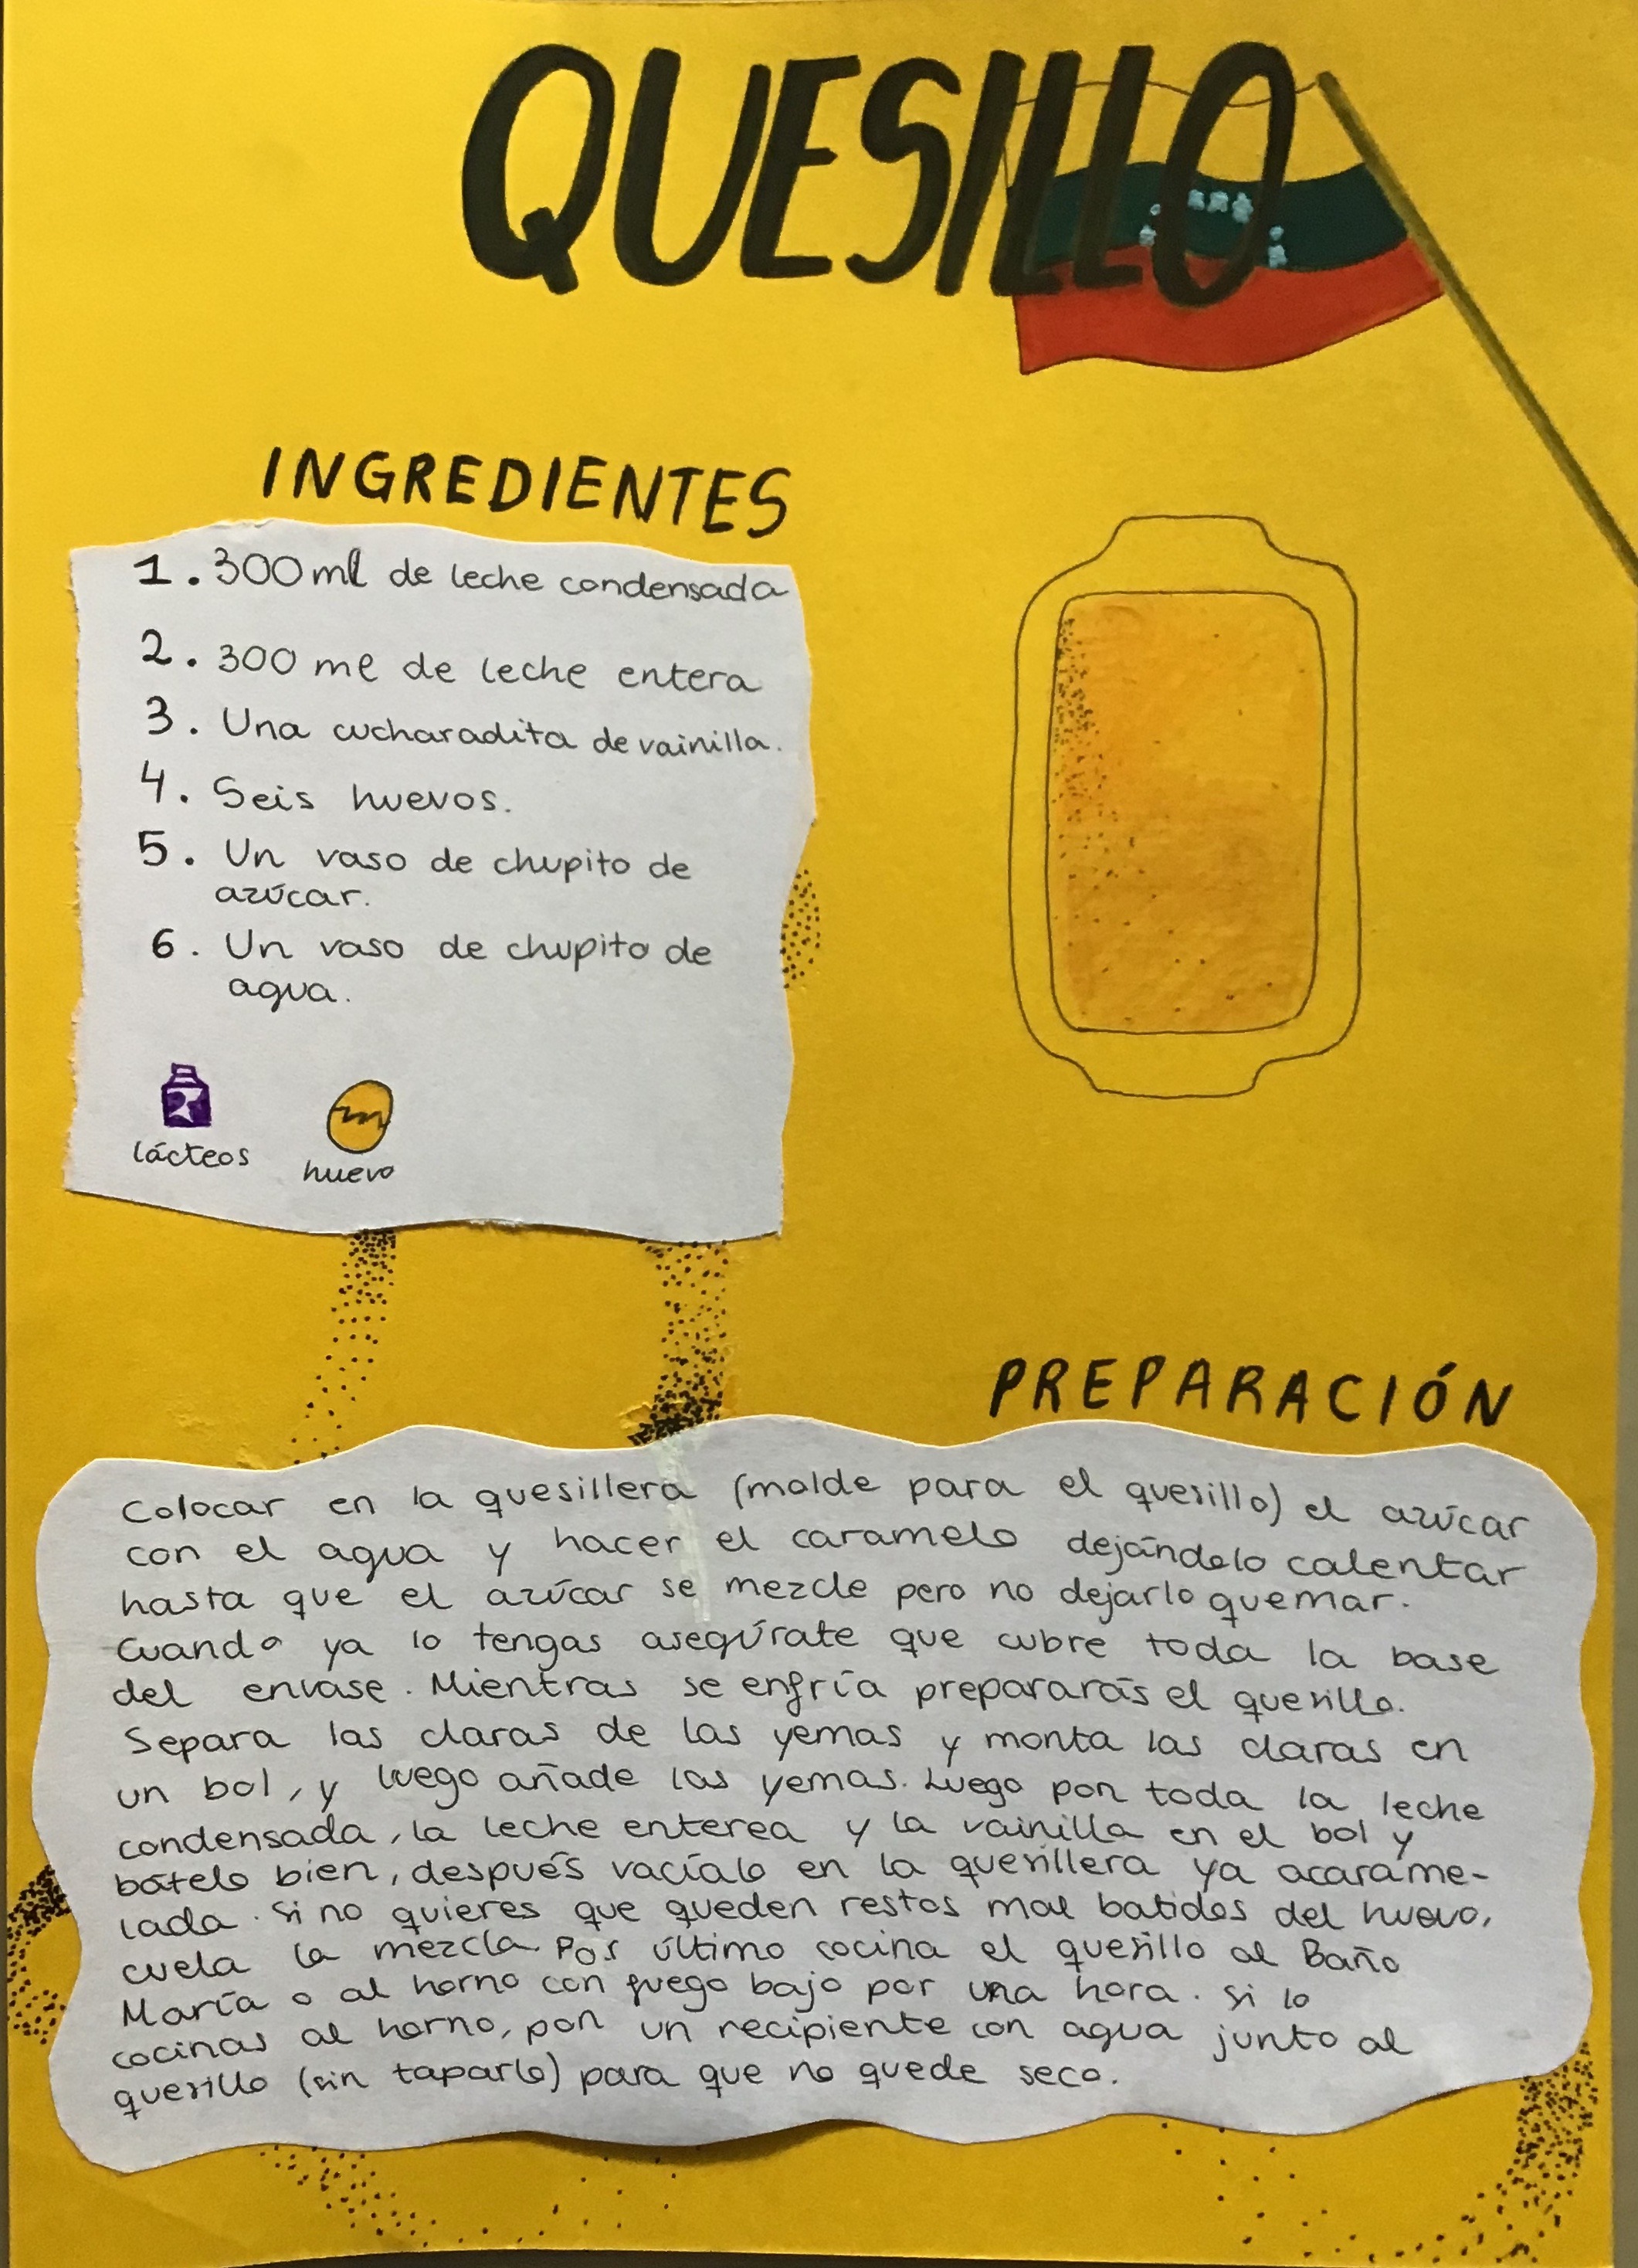 QUESILLO
INGREDIENTES
1. 300 ml de leche condensada
2. 300 ml de leche entera
3. Una cucharadita de vainilla.
4. Seis huevos.
5. Un vaso de chupito de
azúcar.
6. Un vaso de chupito de
agua.
lácteos
huevo
PREPARACIÓN
Colocar en la quesillera (molde para el quesillo) el azúcar
con el agua y hacer el caramelo dejándolo calentar
hasta que el azúcar se mezcle pero no dejarlo quemar.
Cuando ya lo tengas asegúrate que cubre toda la base
del envase. Mientras se enfría prepararás el quesillo.
Separa las claras de las yemas y monta las claras en
un bol, y luego añade las yemas. Luego pon toda la leche
condensada, la leche enterea y la vainilla en el bol y
bátelo bien, después vacíalo en la quesillera ya acarame-
lada. Si no quieres que queden restos mal batidos del huevo,
cuela la mezcla. Por último cocina el quesillo al Baño
María o al horno con fuego bajo por una hora. Si lo
cocinas al horno, pon un recipiente con agua junto al
quesillo (sin taparlo) para que no quede seco.